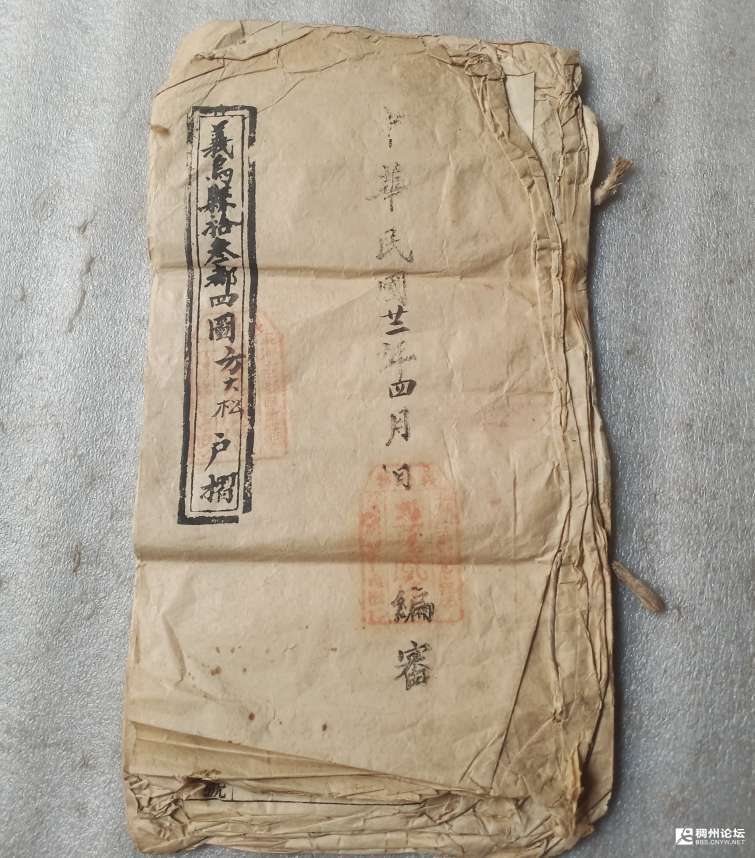 中華民國廿二年四月 日 編審
義烏縣拾叁都四圖方大松戶摺
號
稠州论坛
BBS.CNYW.NET